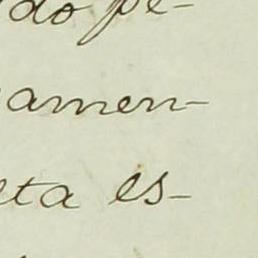 do pe-
amen-
ta es-